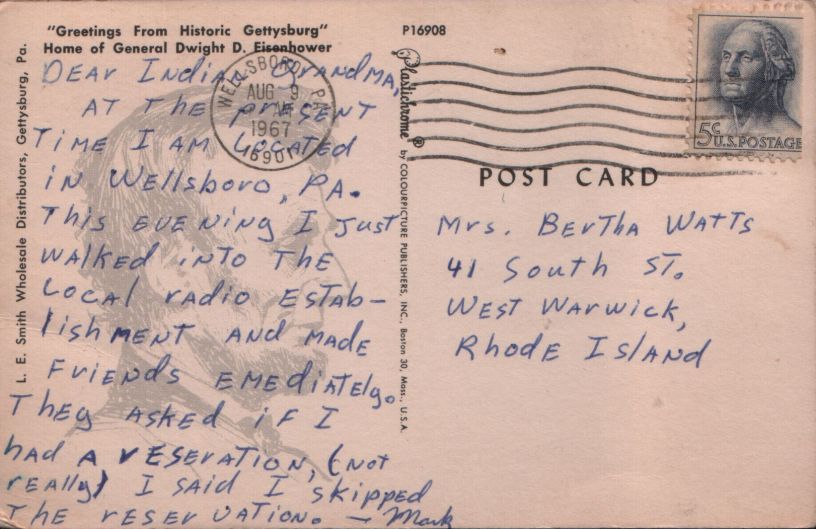 "Greetings From Historic Gettysburg"
Home of General Dwight D. Eisenhower
DEAR Indian Grandma,
AT THE PRESENT
TIME I AM LOCATED
IN Wellsboro, PA.
This EVENING I JUST
WALKED INTO THE
LOCAL radio ESTAB-
lishMENT AND MADE
FriENDS EMEDiATEly.
THEY ASKED iF I
HAD A rESErATION, (NOT
rEAlly) I SAID I SKIPPED
THE rESErVATION. - Mark
L. E. Smith Wholesale Distributors, Gettysburg, Pa.
WELLSBORO, PA.
AUG 9
AM
1967
16901
P16908
Plastichrome® by COLOURPICTURE PUBLISHERS, INC., Boston 30, Mass., U.S.A.
5c
U.S. POSTAGE
POST CARD
Mrs. BErthA WATTS
41 South ST.
WEST WArwick,
Rhode Island